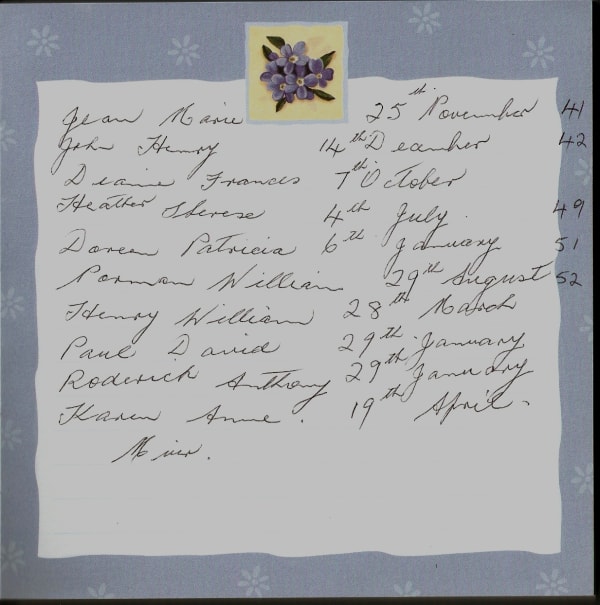 Jean Marie 25th November 41
John Henry 14th December 42
Frances 7th October
Heather Therese 4th July. 49
Doreen Patricia 6th January 51
Norman William 29th August 52
Henry William 28th March
Paul David 29th January
Roderick Anthony 29th January
Karen Anne. 19th April.
Muir.